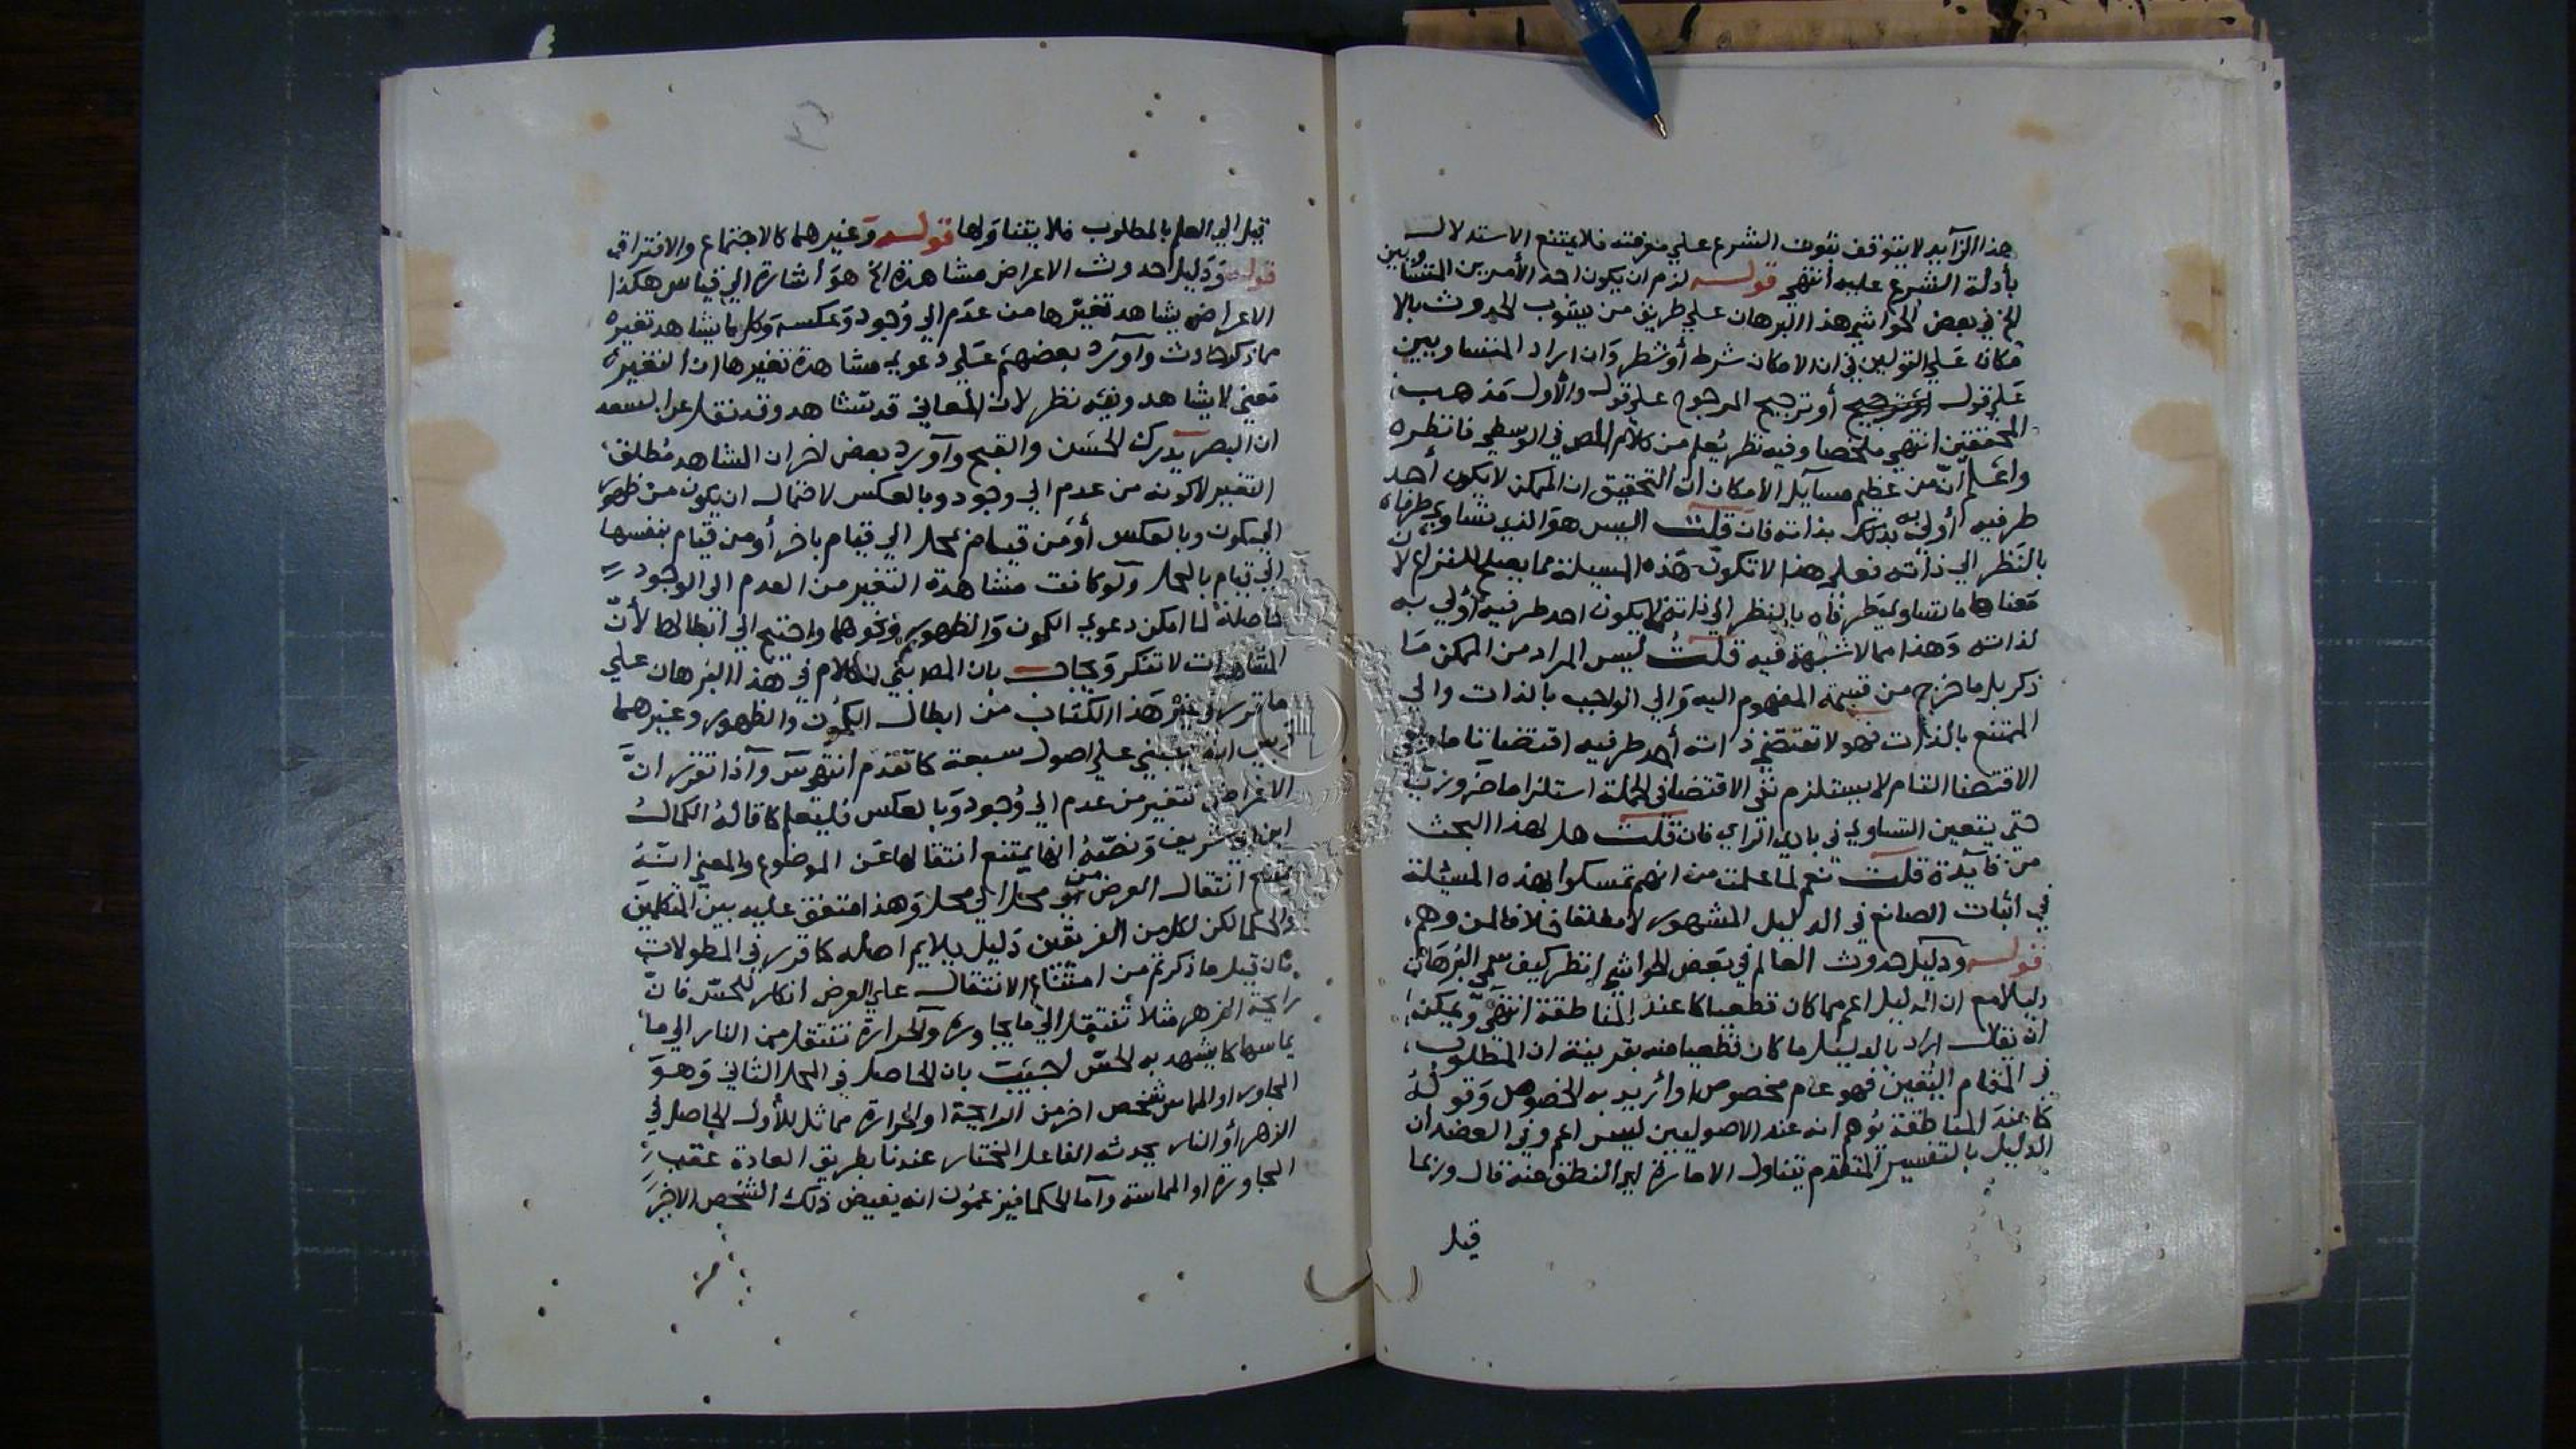 هذا الزآيد لا يتوقف ثبوت الشرع علي معرفته فلا يمتنع الاستدلال
بأدلة الشرع عليه انتهي قوله لزم ان يكون احد الأمرين المتساويين
الخ في بعض الحواشي هذا البرهان علي طريق من يشوب الحدوث بالا
مكان علي القولين في ان الامكان شرط أو شطر وان اراد المتساويين
علي قول أو ترجيح المرجوح علي قول والأول مذهب
المحققين انتهي ملخصا وفيه نظر يُعلم من كلام المص في الوسطي فانظره
واعلم انّ من عظيم مسآيل الامكان ان التحقيق ان الممكن لا يكون أحد
طرفيه أولي به بذلك بذاته فان قلت اليس هو الذي تساوي طرفاه
بالنظر الي ذاته فعلي هذا لا تكون هذه المسيلة مما يصلح للنزاع لان
معناها ما تساوي طرفاه بالنظر الي ذاته لا يكون احد طرفيه أولي به
لذاته وهذا مما لا شبهة فيه قلت ليس المراد من الممكن ما
ذكر بل ما خرج من قسمة المفهوم اليه والي الواجب بالذات والي
الممتنع بالذات فهو لا تقتضي ذاته أحد طرفيه اقتضا تاما ونفي
الاقتضا التام لا يستلزم نفي الاقتضا في الجملة استلزاما ضروريا
حتي يتعين التساوي في بادي الراي فان قلت هل لهذا البحث
من فآيدة قلت نعم لما علمت من انهم تمسكوا بهذه المسئلة
في اثبات الصانع في الدليل المشهور لا مطلقا خلافا لمن وهم
قوله ودليل حدوث العالم في بعض الحواشي انظر كيف سمي البرهان
دليلا مع ان الدليل اعم مما كان قطعيا كما عند المناطقة انتهي ويمكن
ان يقال اراد بالدليل ما كان قطعيا منه بقرينة ان المطلوب
في المقام اليقين فهو عام مخصوص أو أريد به الخصوص وقوله
كما عند المناطقة يُوهم انه عند الاصوليين ليس اعم وفي العضد ان
الدليل بالتفسير المتقدم يتناول الامارة اي النطق عنه قال وربما
قيل
قيل الي العلم بالمطلوب فلا يتناولها قوله وغيرهما كالاجتماع والافتراق
قوله ودليل حدوث الاعراض مشاهدة الخ هو أشارة الي قياس هكذا
الاعراض يشاهد تغيّرها من عدم الي وُجود وعكسه وكل ما يشاهد تغيره
مما ذكر حادث وآورد بعضهم علي دعوي مشاهدة تغيرها ان التغير
معني لا يشاهد وفيه نظر لان المعاني قد تشاهد وقد نقل عن السعد
ان البصر يدرك الحسن والقبح وآورد بعض اخر ان المشاهد مُطلق
التغير لا كونه من عدم الي وجود وبالعكس لاحتمال ان يكون من ظهور
الي كمون وبالعكس أو من قيام بمحل الي قيام باخر أو من قيام بنفسها
الي قيام بالمحل ولو كانت مشاهدة التغير من العدم الي الوجود
حاصلة لما امكن دعوي الكمون والظهور ونحوهما واحتيج الي ابطالها لأنّ
المشاهدات لا تنكر ويجاب بان المص بني الكلام في هذا البرهان علي
ما قرر في غير هذا الكتاب من ابطال الكمون والظهور وغيرهما
مبني علي اصول سبعة كما تقدم انتهي وآذا تقرر انّ
الاعراض تتغير من عدم الي وُجود وبالعكس فليعلم كما قاله الكمال
ابن ابي شريف ونصّه انها يمتنع انتقالها عن الموضوع والمعني انه
يمتنع انتقال العرض من محل الي محل وهذا متفق عليه بين المتكلمين
والحكما لكن لكل من الفريقين دليل يلايم اصله كما قرر في المطولات
فان قيل ما ذكرتم من امتناع الانتقال علي العرض انكار للحس فانّ
رايحة الزهر مثلا تنتقل الي ما يجاوره والحرارة تنتقل من النار الي ما
يماسها كما يشهد به الحسّ اجيبت بان الحاصل في المحل الثاني وهو
المجاور او المماس شخص اخر من الرايحة او الحرارة مماثل للأول الحاصل في
الزهر أو النار يحدثه الفاعل المختار عندنا بطريق العادة عقب
المجاورة او المماسة وآما الحكما فيزعمون انه يفيض ذلك الشخص الاخر